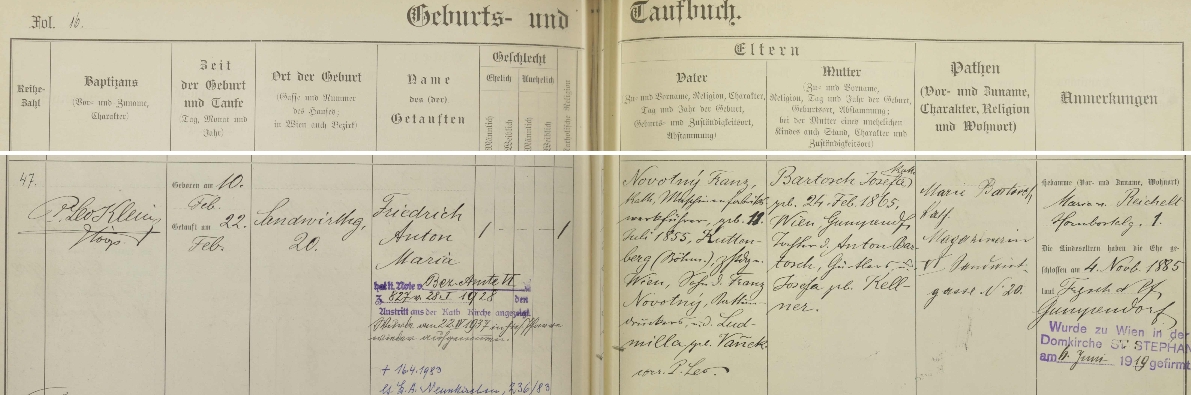 Fol. 16.
Geburts- und Taufbuch.
Reihe-
Zahl
Baptizans
(Vor- und Zuname,
Charakter)
Zeit
der Geburt
und Taufe
(Tag, Monat und
Jahr)
Ort der Geburt
(Gasse und Nummer
des Hauses;
in Wien auch Bezirk)
Name
des (der)
Getauften
Geschlecht
Ehelich
Unehelich
Männlich
Weiblich
Männlich
Weiblich
Katholische Religion
Eltern
Vater
Zu- und Vorname, Religion, Charakter,
Tag und Jahr der Geburt,
Geburts- und Zuständigkeitsort,
Abstammung)
Mutter
(Zu- und Vorname,
Religion, Tag und Jahr der Geburt,
Geburtsort, Abstammung;
bei der Mutter eines unehelichen
Kindes auch Stand, Charakter und
Zuständigkeitsort)
Pathen
(Vor- und Zuname,
Charakter, Religion
und Wohnort)
Anmerkungen
47.
P. Leo Klein
Geboren am 10.
Feb.
Getauft am 22.
Feb.
Sandwirthg.
20.
Friedrich
Anton
Maria
1
1
laut Note v. Bez. Amte VI
Z. 827 v. 28. I. 1928 den
Austritt aus der Kath. Kirche angezeigt.
wieder aufgenommen.
+ 16.4.1983
236/83
Novotný Franz,
kath., Maschinenfabriks
werkführer, geb. 11.
Juli 1855, Kutten-
berg (Böhm.), zstdg.
Wien, Sohn d. Franz
Novotný,
druckers, u.d. Lud-
milla geb. Vaněk
corr. P. Leo.
Bartosch Josefa, kath.
geb. 24. Feb. 1865,
Wien Gumpend.
Tochter d. Anton Bar-
tosch, Gürtlers u.
Josefa geb. Kell-
ner.
Marie Bartosch
kath.
VI Sandwirt-
gasse N 20.
Hebamme (Vor- und Zuname, Wohnort)
Maria Reichelt
Hornbostelg. 1.
Die Kindeseltern haben die Ehe ge-
schlossen am 4. Novb. 1885
laut Pf.
Gumpendorf
Wurde zu Wien in der
Domkirche ST. STEPHAN
am 11. Juni 1919 gefirmt